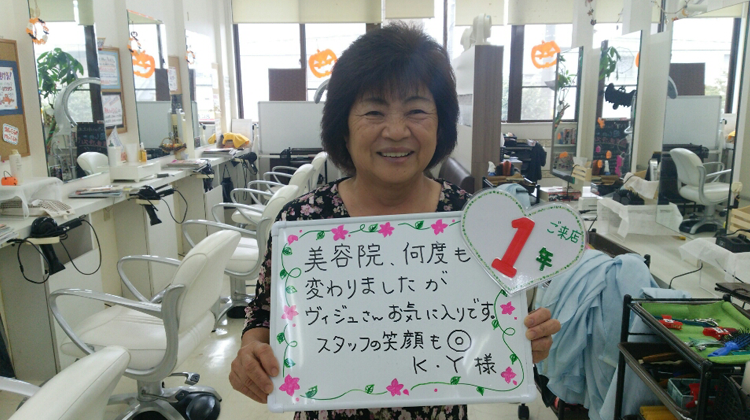 美容院、何度も
変わりましたが
ヴィジュさんお気に入りです。
スタッフの笑顔も◎
K.Y様
ご来店
1年